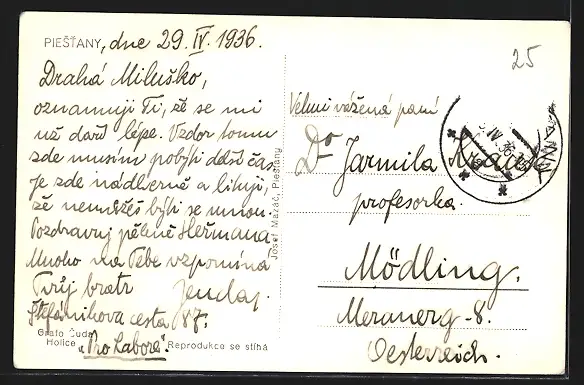 25
PIEŠŤANY, dne 29. IV. 1936.
Drahá Miluško,
oznamuji Ti, že se mi
už daří lépe. Vzdor tomu
zde musím pobýti delší čas.
Je zde nádherně a lituji,
že nemůžeš býti se mnou.
Pozdravuj pěkně Heřmana.
Mnoho na Tebe vzpomíná
Tvůj bratr
Štefánikova cesta
"Pro Labore".
Grafo Čuda
Holice
Reprodukce se stíhá
Josef Mazáč, Piešťany
Velmi vážená paní
Dr Jarmila
profesorka.
Mödling.
Meranerg-8.
Oesterreich.